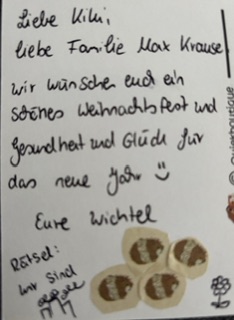 Liebe Kiki,
liebe Familie Max Krause
wir wünschen euch ein
schönes Weihnachtsfest und
Gesundheit und Glück für
das neue Jahr
Eure Wichtel
Rätsel:
Wir sind